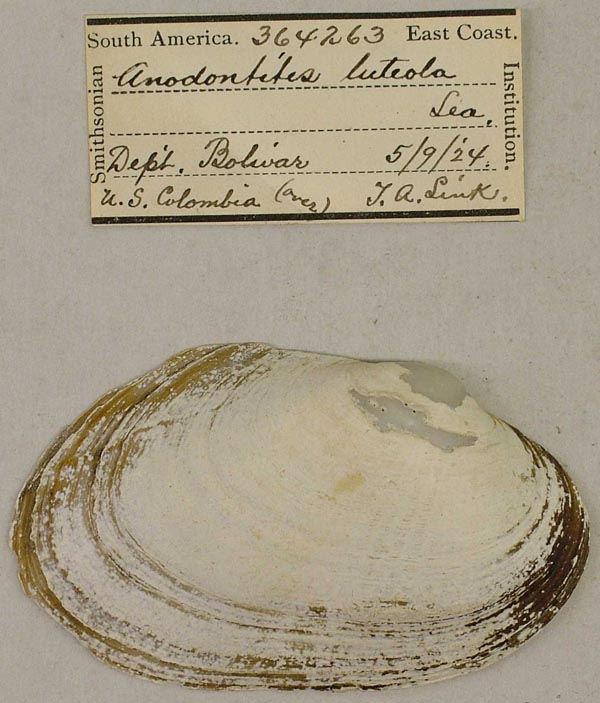 South America. 364263 East Coast.
Smithsonian
Anodontites luteola
Lea.
Institution.
Dep't. Bolivar 5/9/'24.
U.S. Colombia (over) T. A. Link.